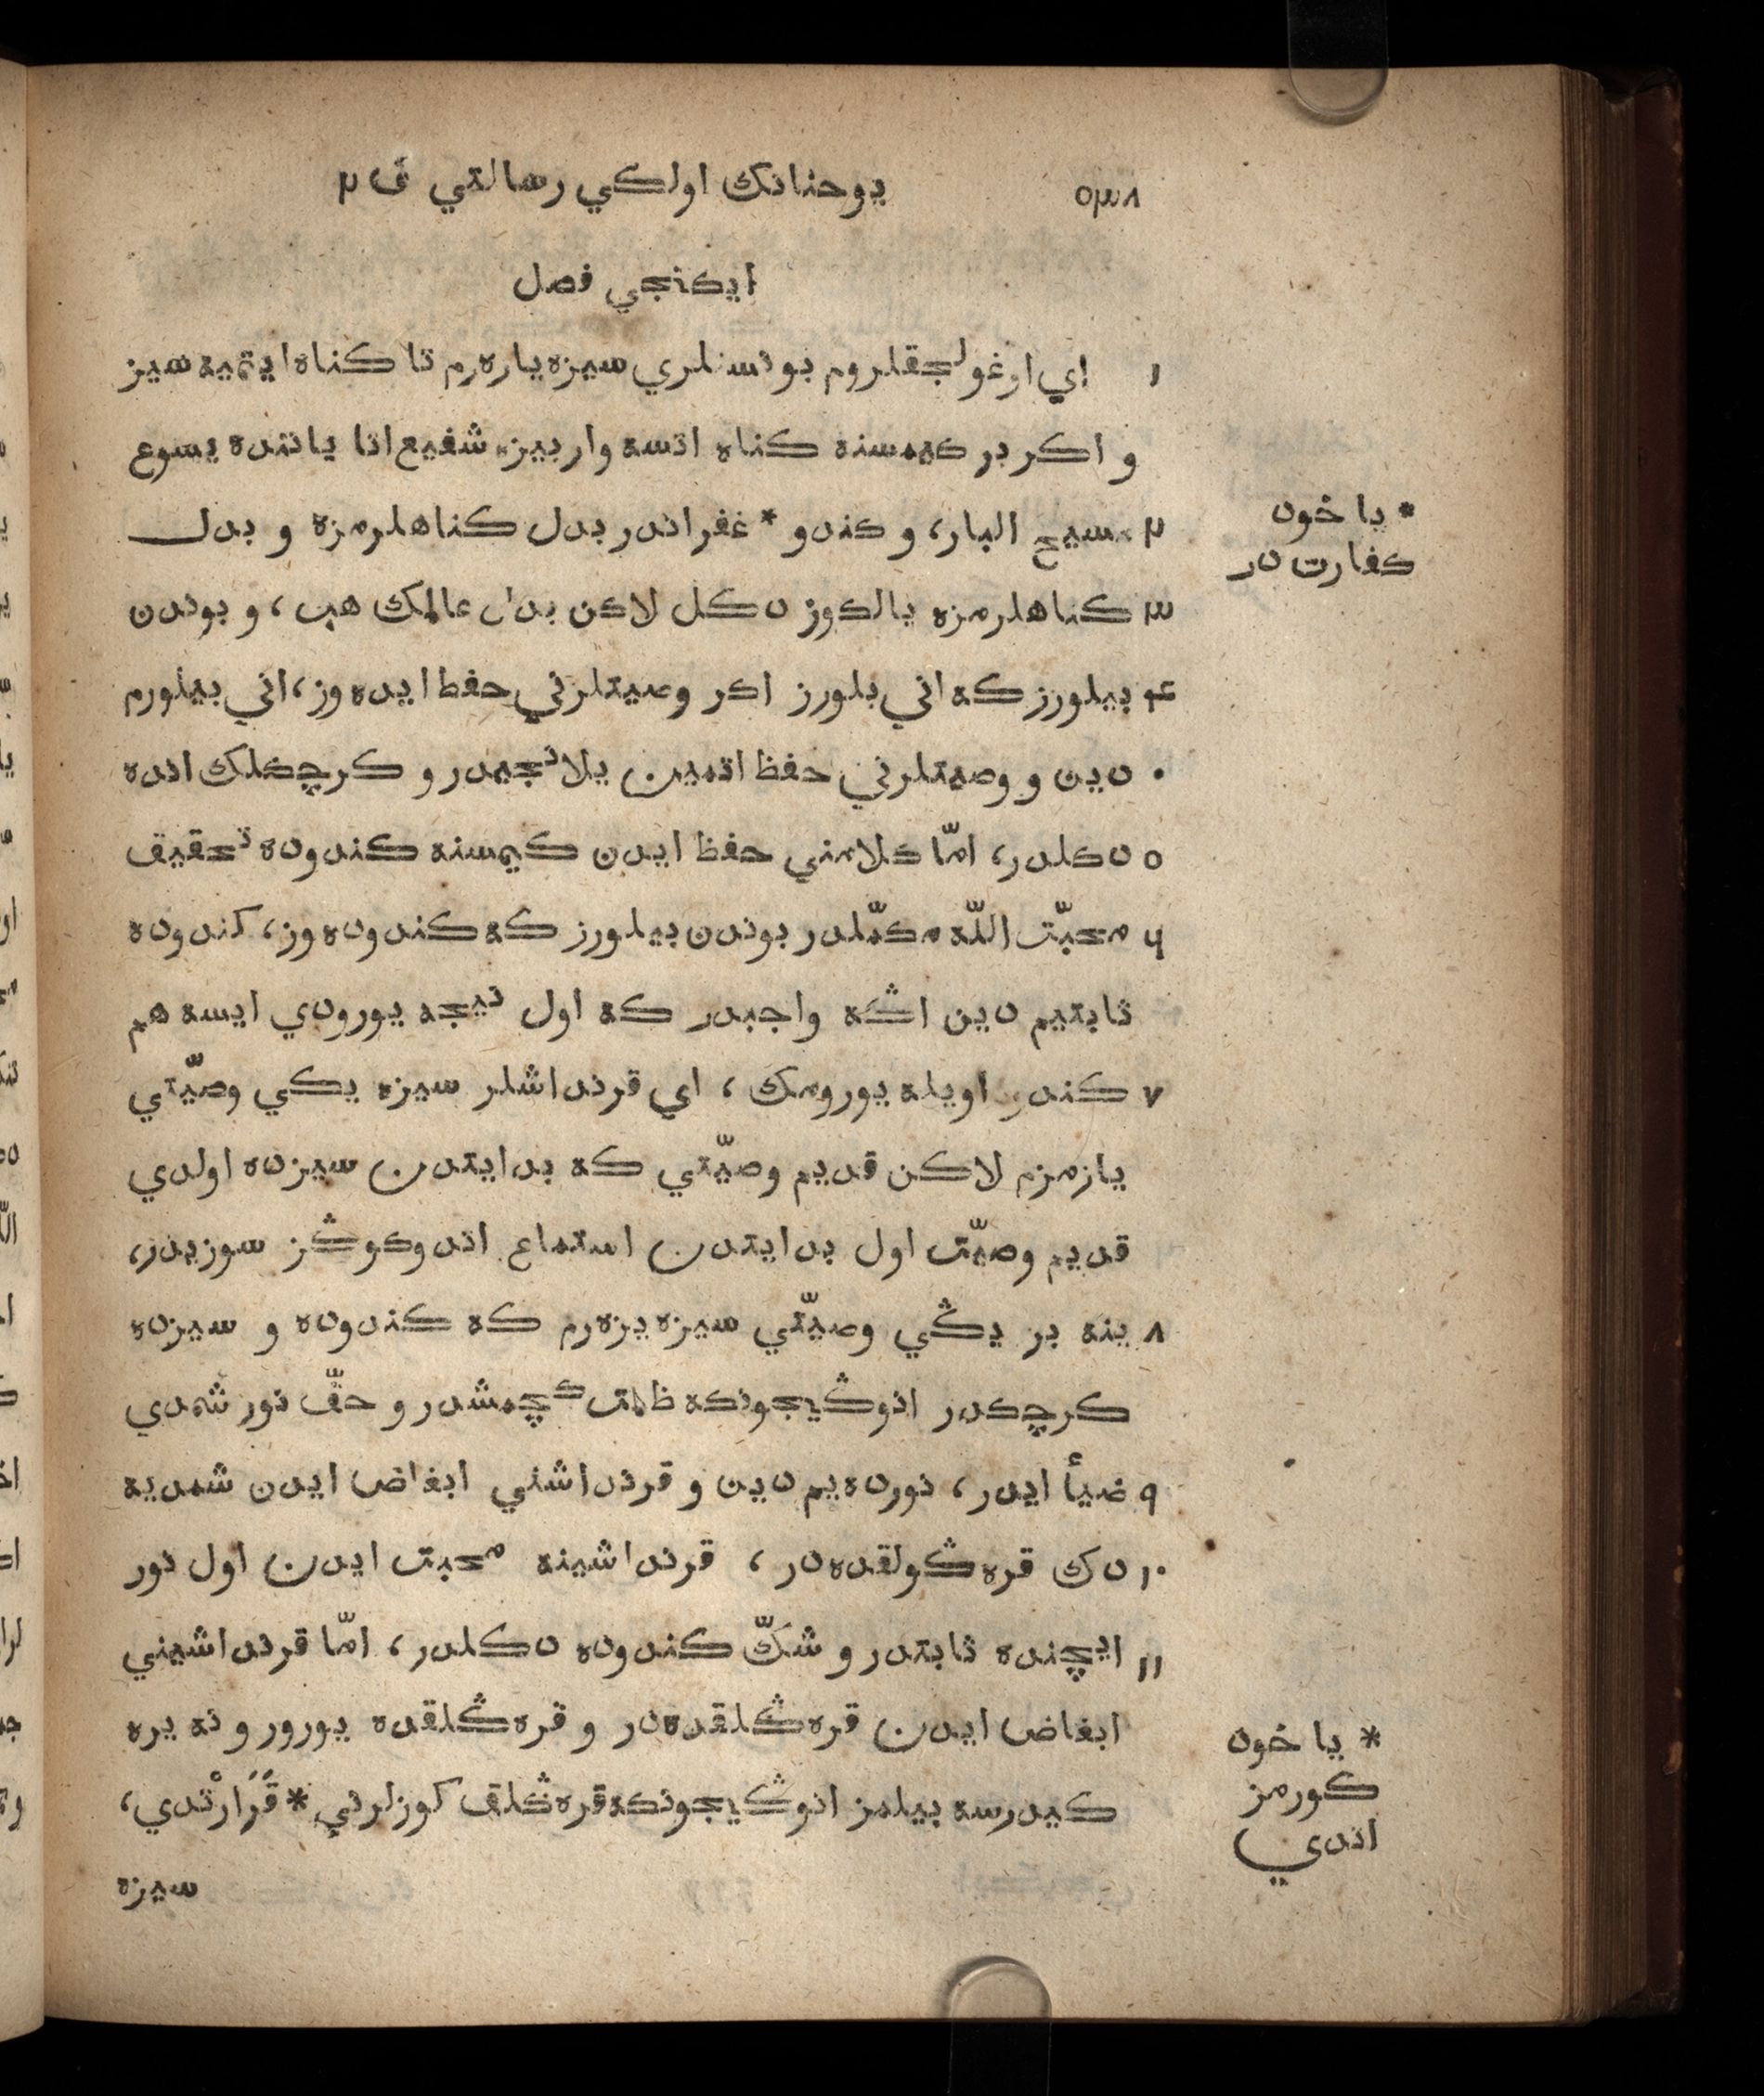 ٥٣٨ يوحنانك اولكي رسالتي ف ٢
ايكنجي فصل
١ اي اوغولجقلروم بو نسنلري سيزه يازه‌رم تا كناه ايتميه سيز
و اكر بر كيمسنه كناه اتسه وار بيزم شفيع اتا ياننده يسوع
٢ مسيح البار، و كندو * غفراندر بدل كناهلرمزه و بدل
٣ كناهلرمزه يالكوز دكل لاكن بدل عالمك هپ، و بوندن
۴ بيلورز كه اني بلورز اكر وصيتلرني حفظ ايده‌وز، اني بيلورم
دين و وصيتلرني حفظ اتمين يلانجيدر و كرچكلك انده
٥ دكلدر، امّا كلامني حفظ ايدن كيمسنه كندوده تحقيق
٦ محبّت اللّه مكمّلدر بوندن بيلورز كه كندوده‌وز، كندوده
ثابتيم دين اڭه واجبدر كه اول نيجه يورودي ايسه هم
٧ كندو اويله يورومك، اي قرنداشلر سيزه يكي وصيّتي
يازمزم لاكن قديم وصيّتي كه بدايتدن سيزده اولدي
قديم وصيّت اول بدايتدن استماع اتدوكوڭز سوزيدر،
٨ ينه بر يڭي وصيّتي سيزه يزه‌رم كه كندوده و سيزده
كرچكدر انوڭيجونكه ظلمت كچمشدر و حقّ نور شمدي
٩ ضيأ ايدر، نورده‌يم دين و قرنداشني ابغاض ايدن شمديه
١٠ دك قره‌ڭولقده‌در، قرنداشينه محبت ايدن اول نور
١١ ايچنده ثابتدر و شكّ كندوده دكلدر، امّا قرنداشيني
ابغاض ايدن قره‌ڭلقده‌در و قره‌ڭلقده يورور و نه يره
كيدرسه بيلمز انوڭيجونكه قره‌ڭلق كوزلرني * قَرَارْتدي،
سيزه
* يا خود
كفارت در
* يا خود
كورمز
اتدي